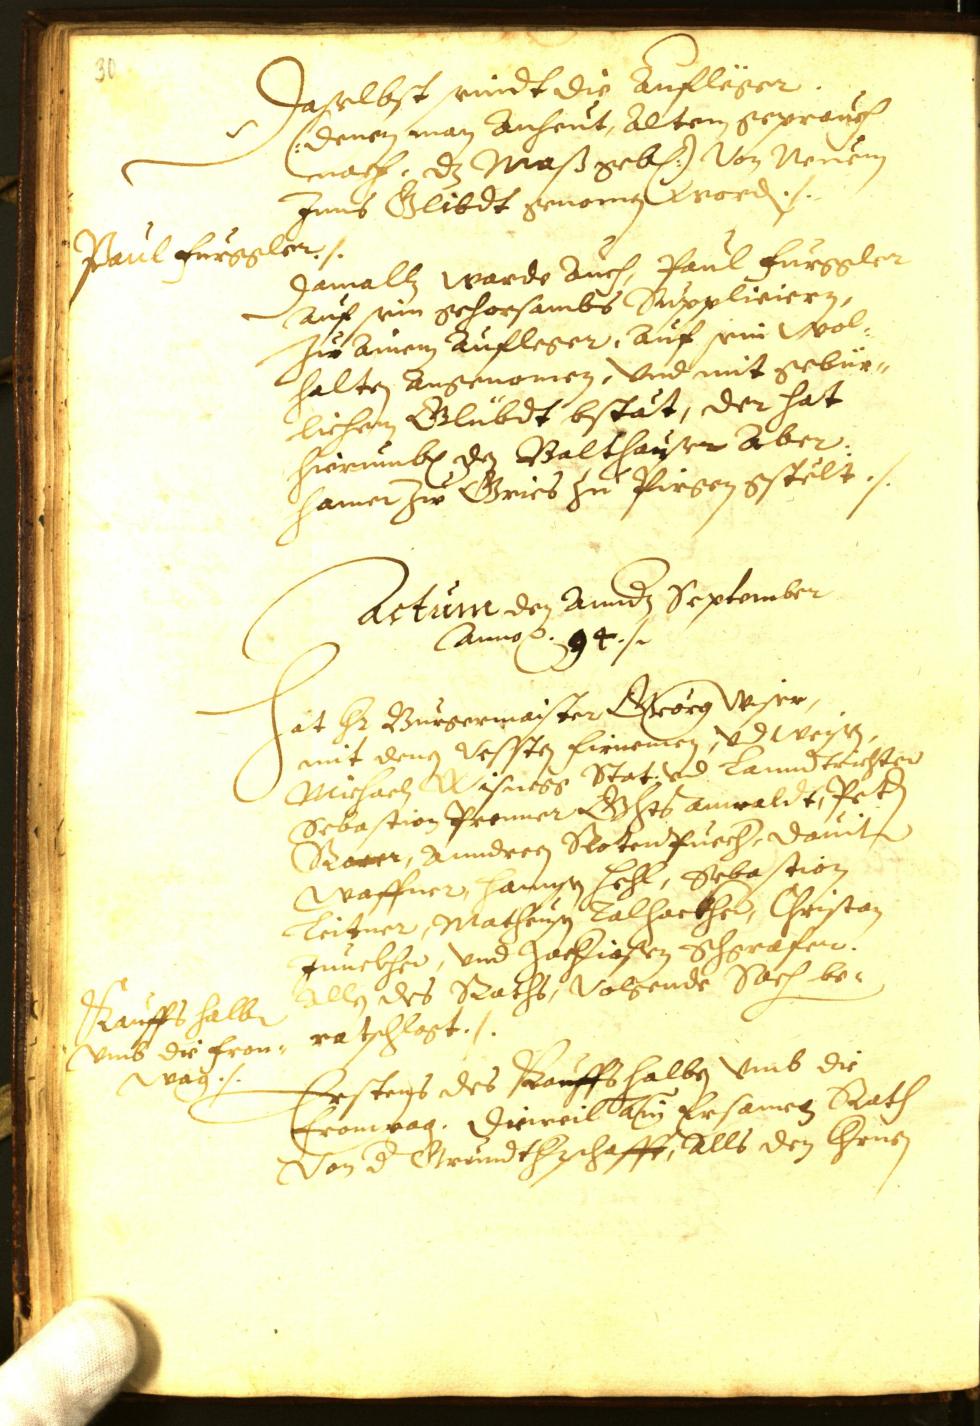 30
Daselbst sindt die Aufleger.
(: denen man anheut, altem geprauch
nach, dz Maß geb. :) Von Neuem
Inns Glibdt genomen word ./.
Paul Furggler ./.
Damalln warde auch, Paul Furggler
auf sein gehorsambs Suppliciern,
zu ainem Aufleger, auf sein wol-
halten angenomen, und mit gebür-
lichem Glübdt bstät, der hat
hierumb den Balthauser Aber-
hamer zu Gries zu Pirgen gstelt ./.
Actum den Anndn September
Anno 94 ./.
Hat Hr Burgermaister Georg
mit denen Vessten firnemen, vnd weisen,
Michaeln Stat vnd Lanndtrichter
Sebastion Prenner Ghts anwaldt, Petr
Rarer, Anndreen Rotenpuech, Dauit
Waffner, Hannsen Hehl, Sebastion
Leitner, Matheusen Talhackher, Christan
Junckher, vnd Zachiasen Schgrafer.
Allen des Raths, Volgende Sach be-
ratschlagt ./.
Kauffs halben
vmb die Fron-
wag ./.
Erstens des Kauffs halben vmb die
Fronwag. Dieweil ain Ersamen Rath
Von d Grundthschafft, alls den Ehrnen